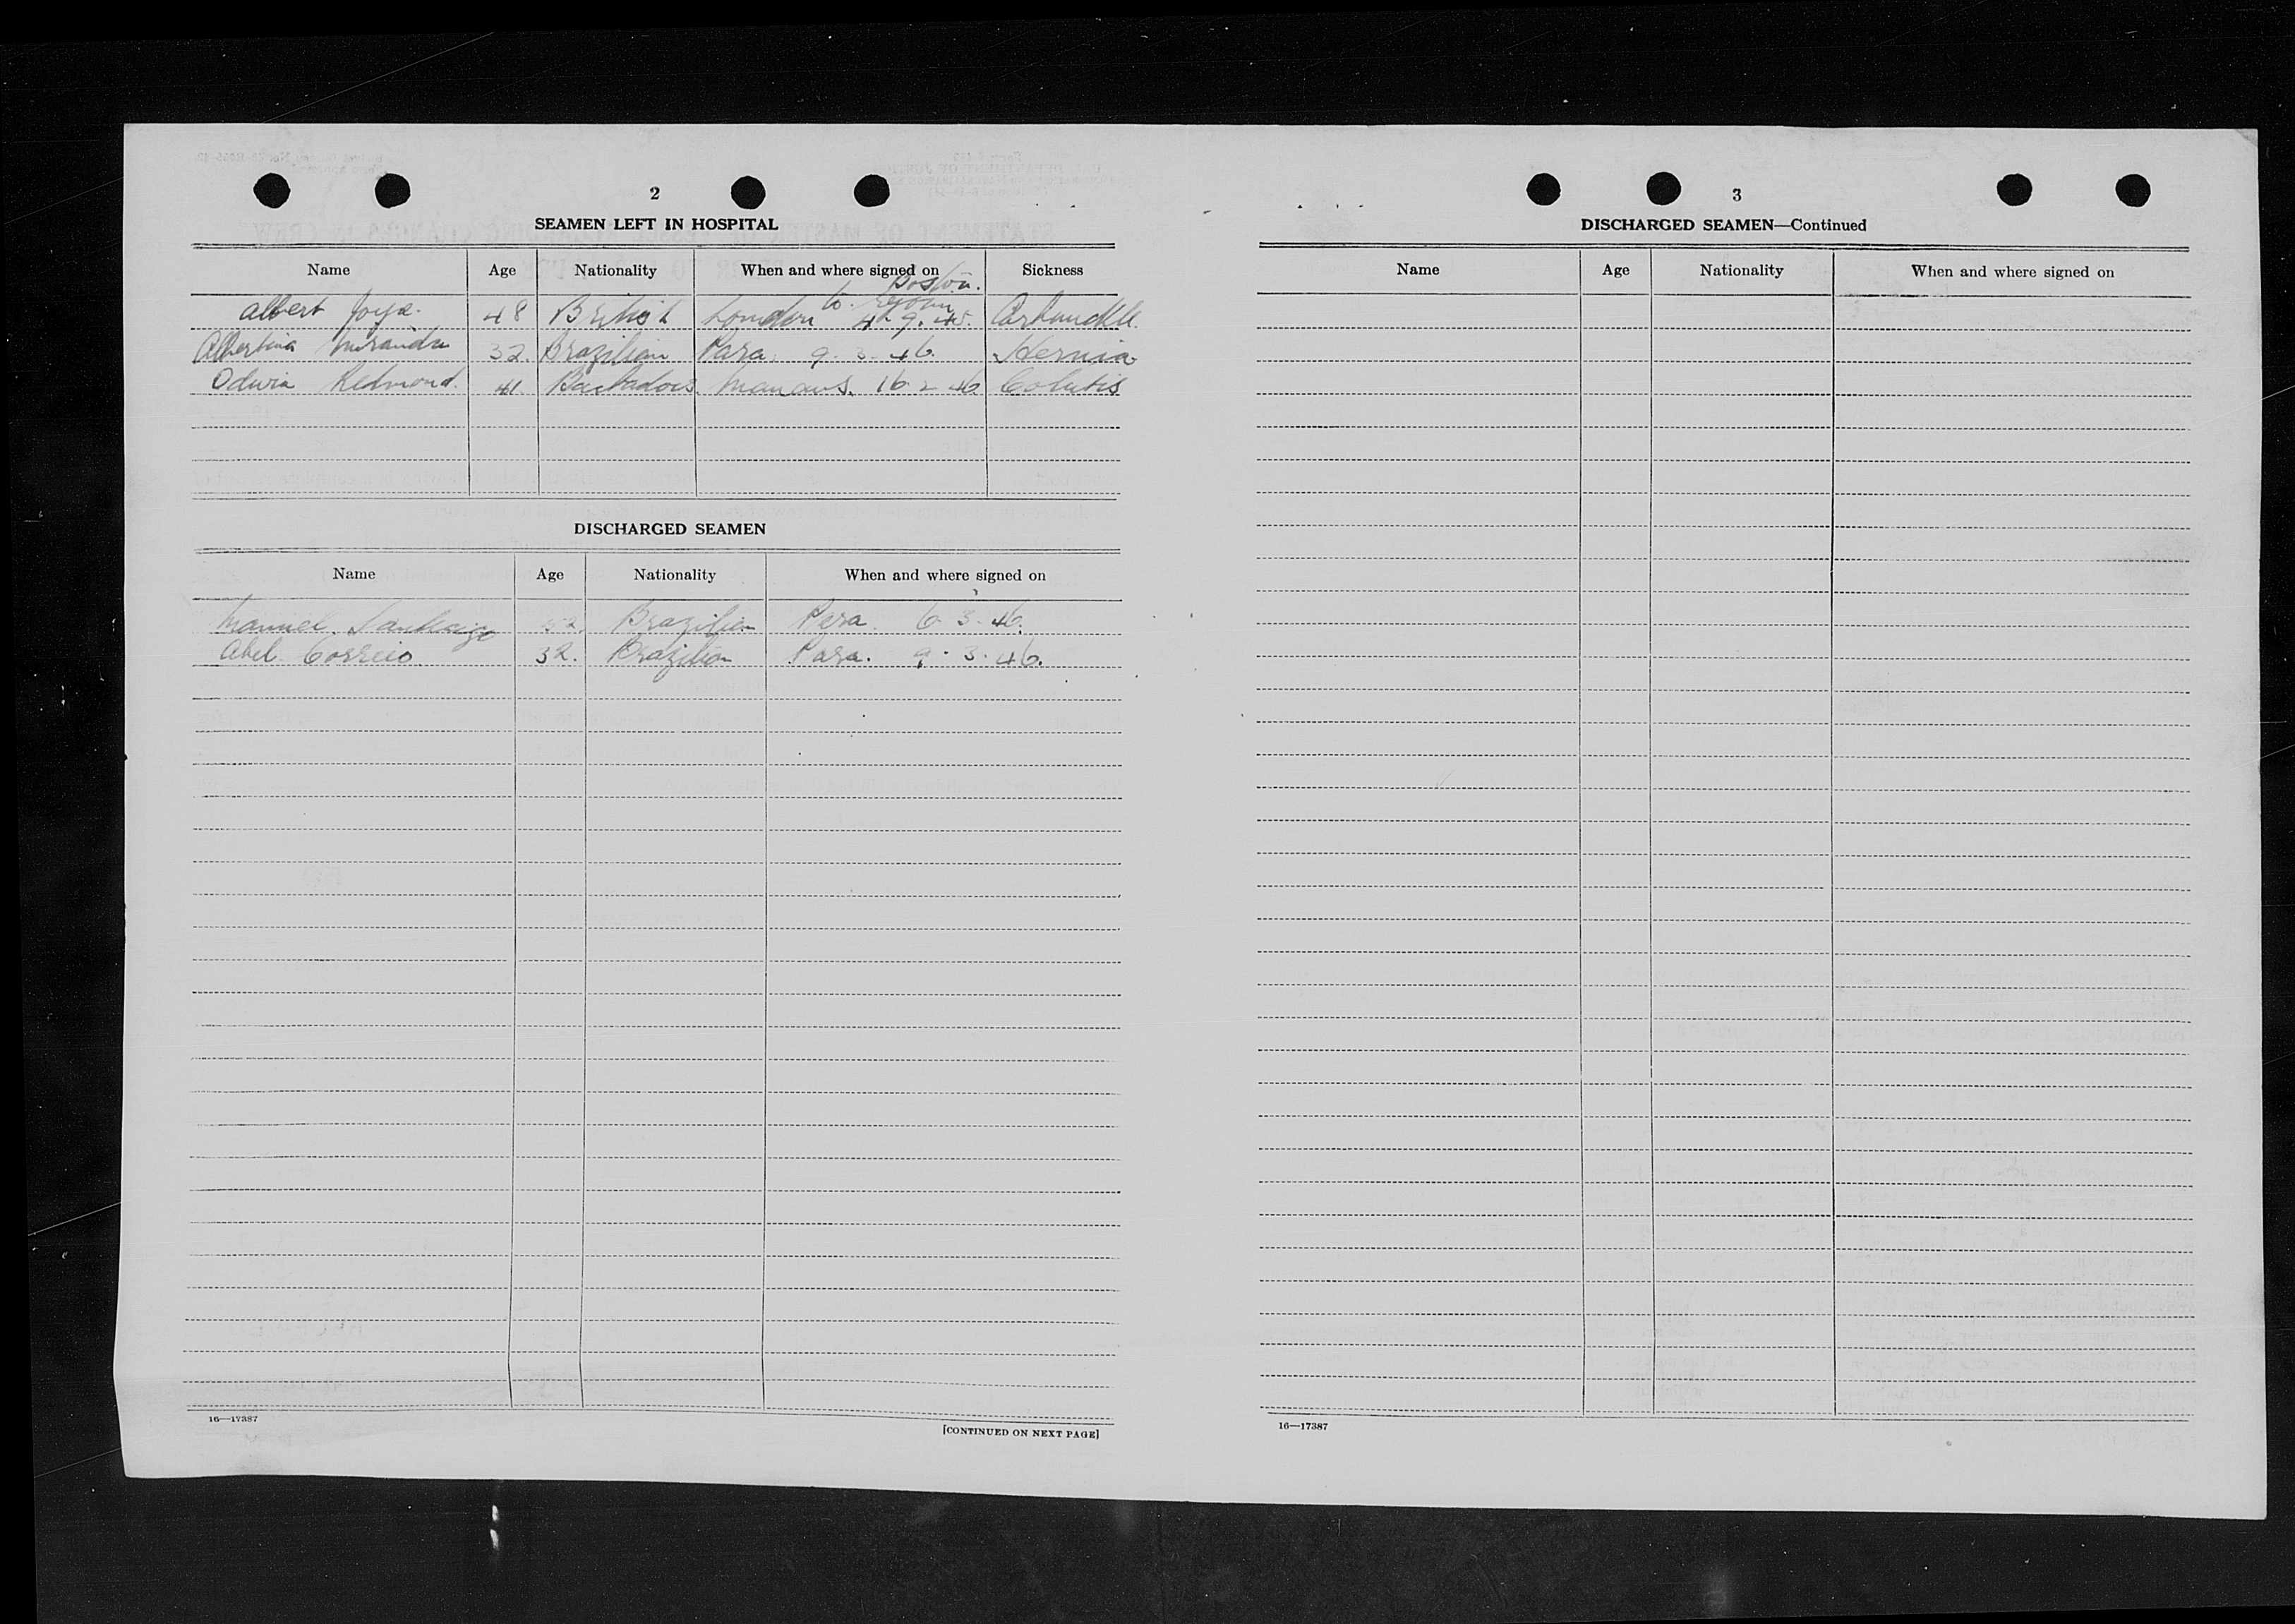 2
SEAMEN LEFT IN HOSPITAL
Name Age Nationality When and where signed on Sickness
Boston.
Albert 48 British London to 9. 45. Carbunckle.
Albertina Miranda 32. Brazilian Para. 9. 3. 46. Hernia
Odwin Redmond. 41. Barbados. Manaus. 16. 2 46 Colutis
DISCHARGED SEAMEN
Name Age Nationality When and where signed on
Manuel Santiago 32. Brazilian Para. 6. 3. 46.
Abel Correio. 32. Brazilian Para. 9. 3. 46.
16—17387
[CONTINUED ON NEXT PAGE]
3
DISCHARGED SEAMEN—Continued
Name Age Nationality When and where signed on
16—17387